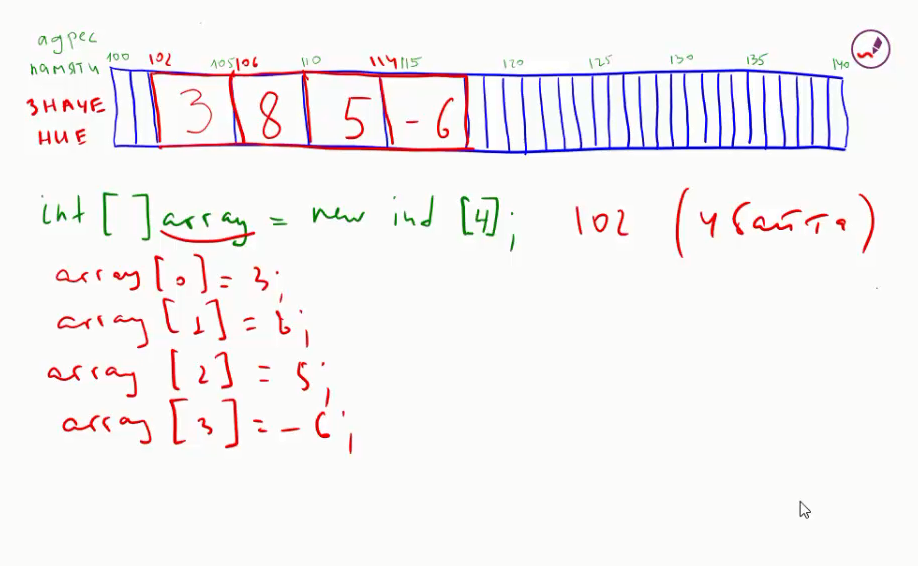 адрес
памяти
100 102 105 106 110 114 115 120 125 130 135 140
ЗНАЧЕ
НИЕ
3 8 5 -6
int [ ] array = new ind [4]; 102 (4 байта)
array [0] = 3;
array [1] = 8;
array [2] = 5;
array [3] = -6;